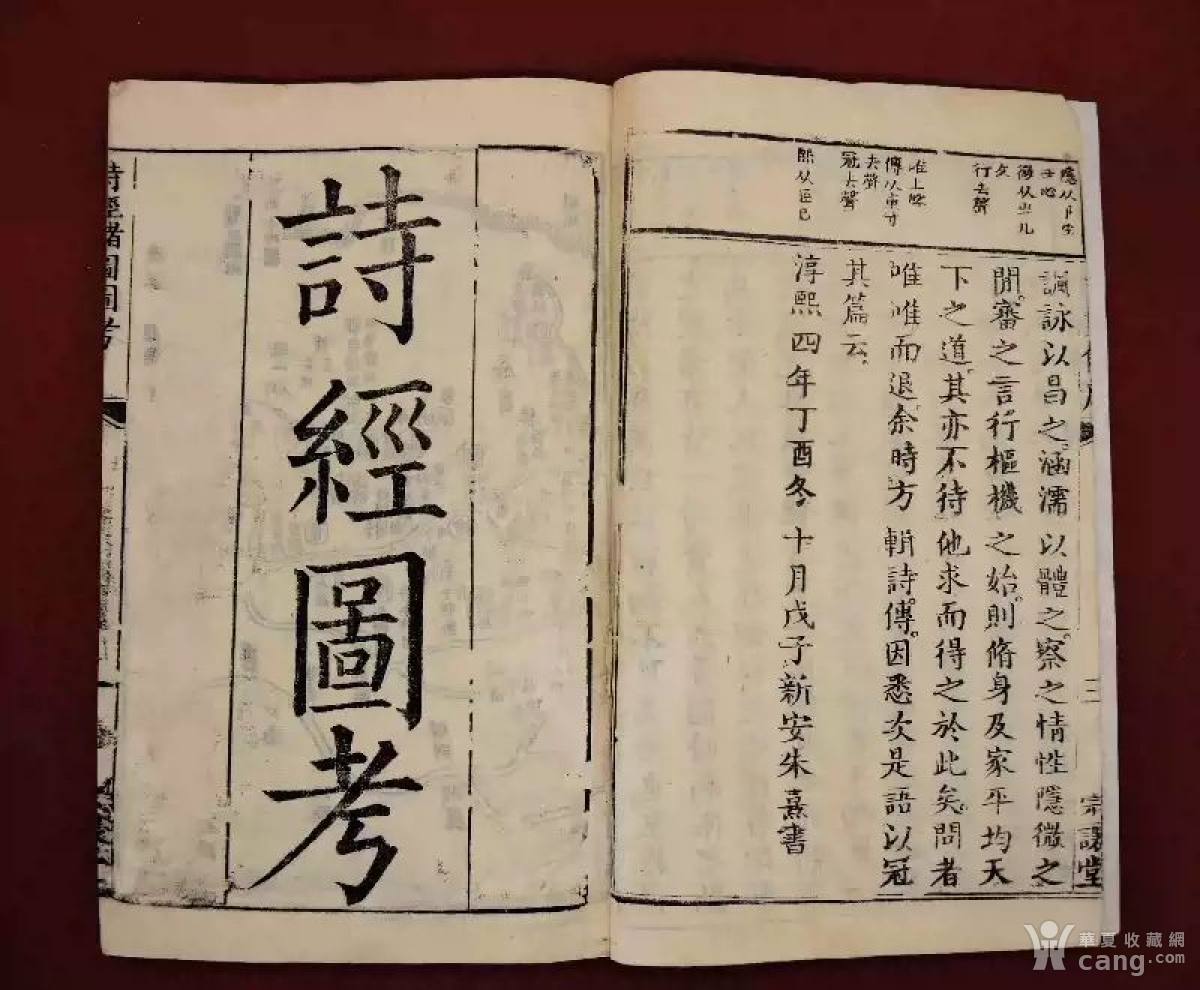 行去聲
唯上聲
傳从專寸
去聲
冠去聲
熙从匝巳
諷詠以昌之涵濡以體之察之情性隱微之
閒審之言行樞機之始則脩身及家平均天
下之道其亦不待他求而得之於此矣問者
唯唯而退余時方輯詩傳因悉次是語以冠
其篇云
淳熙四年丁酉冬十月戊子新安朱熹書
三
宗讓堂
詩經圖考
詩經諸圖
華夏收藏網
cang.com